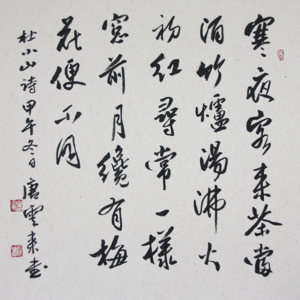 寒夜客来茶當
酒竹爐湯沸火
初紅尋常一樣
窓前月纔有梅
花便不同
杜小山诗甲午冬日唐雲来書